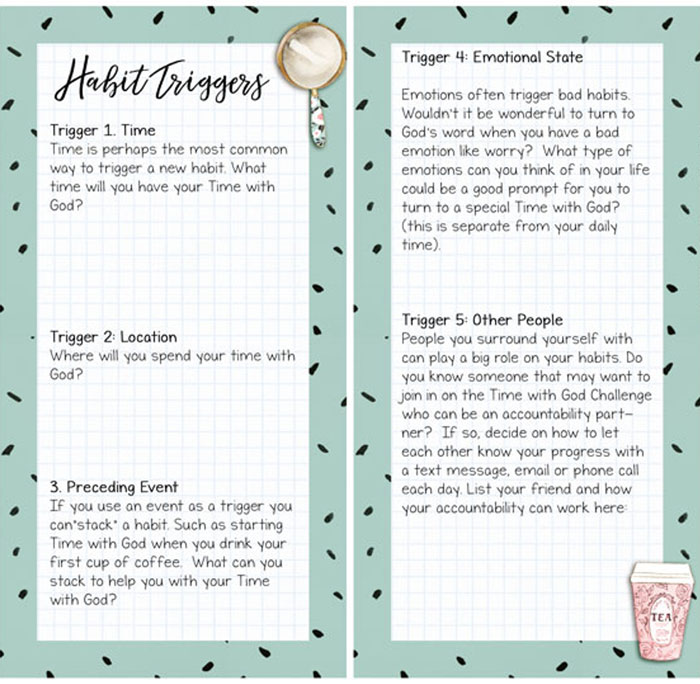 Habit Triggers
Trigger 1. Time
Time is perhaps the most common
way to trigger a new habit. What
time will you have your Time with
God?
Trigger 2: Location
Where will you spend your time with
God?
3. Preceding Event
If you use an event as a trigger you
can"stack" a habit. Such as starting
Time with God when you drink your
first cup of coffee. What can you
stack to help you with your Time
with God?
Trigger 4: Emotional State
Emotions often trigger bad habits.
Wouldn't it be wonderful to turn to
God's word when you have a bad
emotion like worry? What type of
emotions can you think of in your life
could be a good prompt for you to
turn to a special Time with God?
(this is separate from your daily
time).
Trigger 5: Other People
People you surround yourself with
can play a big role on your habits. Do
you know someone that may want to
join in on the Time with God Challenge
who can be an accountability part-
ner? If so, decide on how to let
each other know your progress with
a text message, email or phone call
each day. List your friend and how
your accountability can work here:
TEA